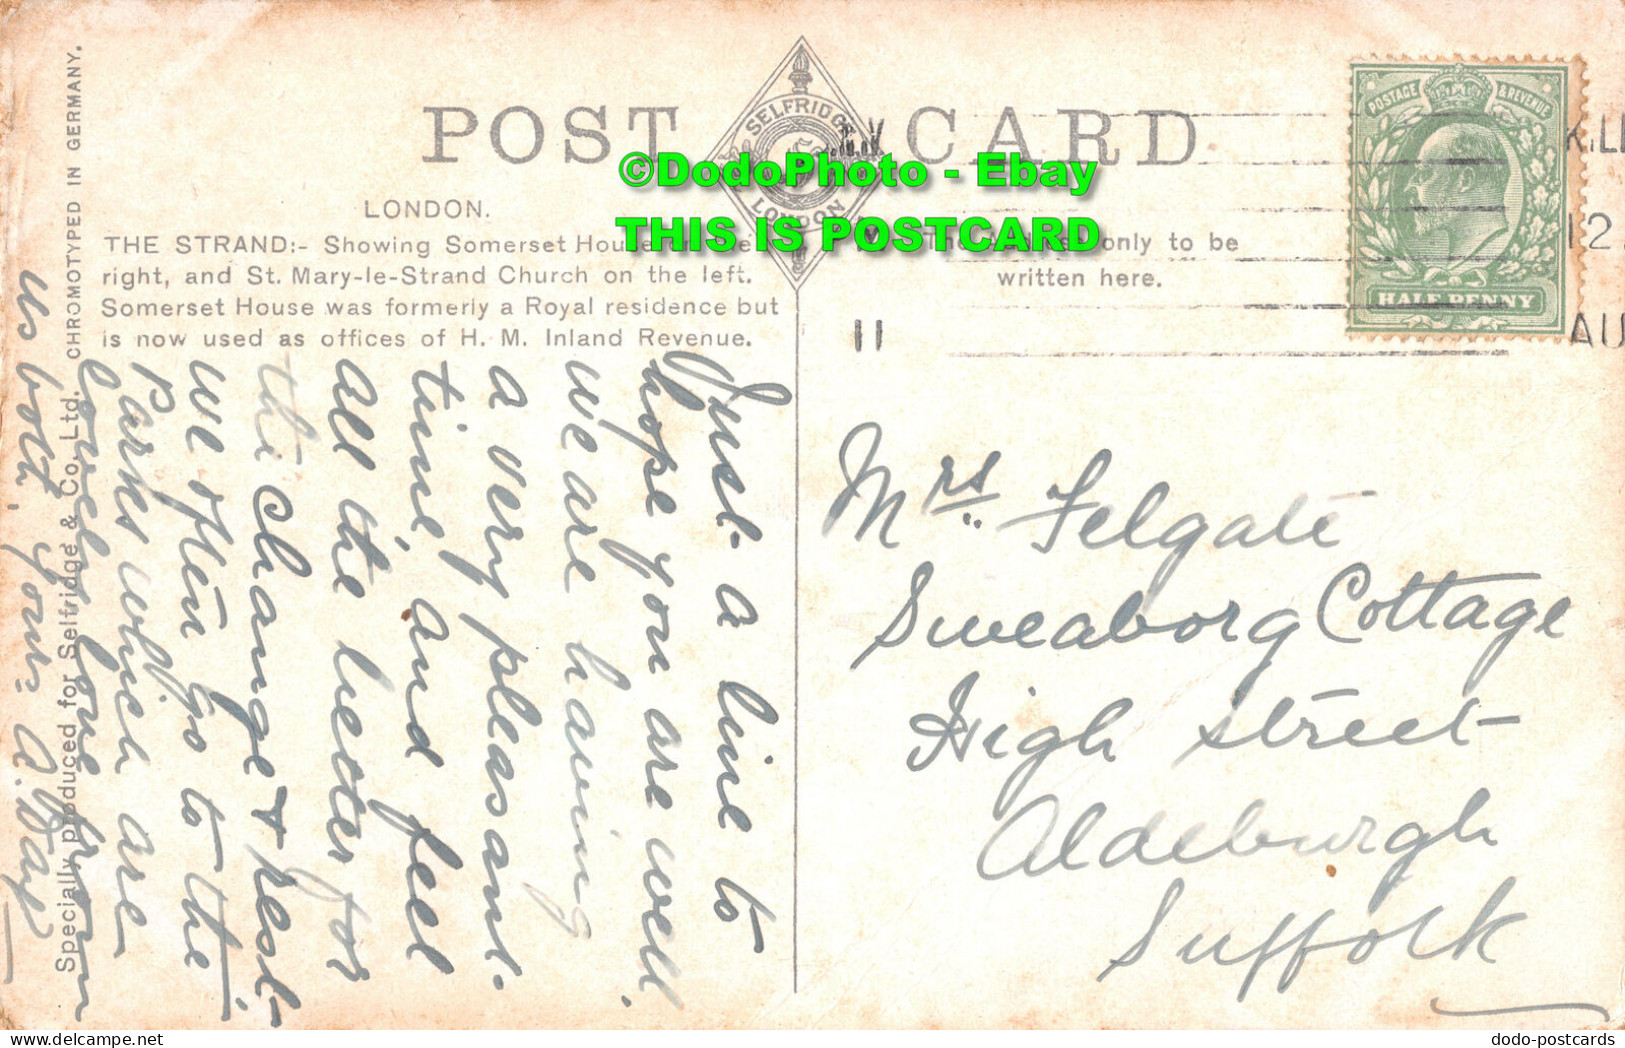 POST CARD
SELFRIDGE
LONDON
©DodoPhoto - Ebay
THIS IS POSTCARD
LONDON.
THE STRAND:- Showing Somerset House
right, and St. Mary-le-Strand Church on the left.
Somerset House was formerly a Royal residence but
is now used as offices of H. M. Inland Revenue.
only to be
written here.
POSTAGE & REVENUE
HALF PENNY
KIL
12
AU
11
CHROMOTYPED IN GERMANY.
Specially produced for Selfridge & Co., Ltd.
Just a line to
hope you are well.
we are having
a very pleasant.
time, and feel
all the better for
the change & rest
we often go to the
Parks which are
lovely love from
us both, yours A. Day
Mrs. Felgate
Sweaborg Cottage
High Street
Aldeburgh
Suffolk
dodo-postcards